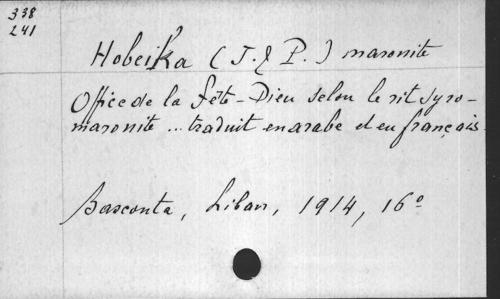 338
241
Hobeika (J. & P.) maronite
Office de la Fête-Dieu selon le rit syro-
maronite ... traduit en arabe et en français.
Basconta, Liban, 1914, 16°